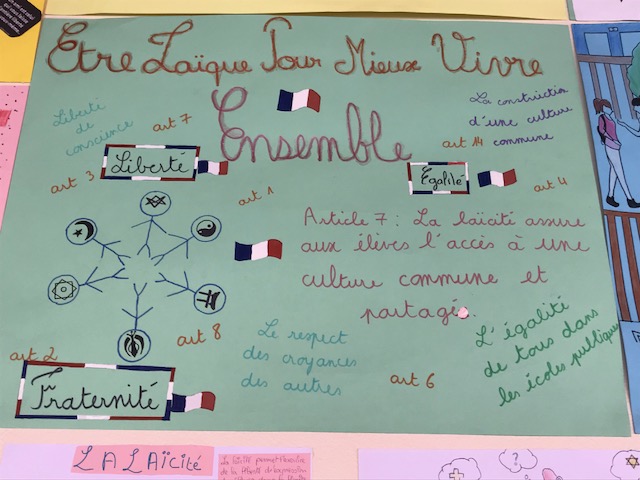 Etre Laïque Pour Mieux Vivre
Ensemble
Liberté
de
conscience
art 7
La construction
d'une culture
commune
art 14
Liberté
Egalité
art 3
art 1
art 4
Article 7 : La laïcité assure
aux élèves l'accès à une
culture commune et
partagé
art 2
art 8
Le respect
des croyances
des autres
art 6
L'égalité
de tous dans
les écoles publiques
Fraternité
LA LAÏCITÉ